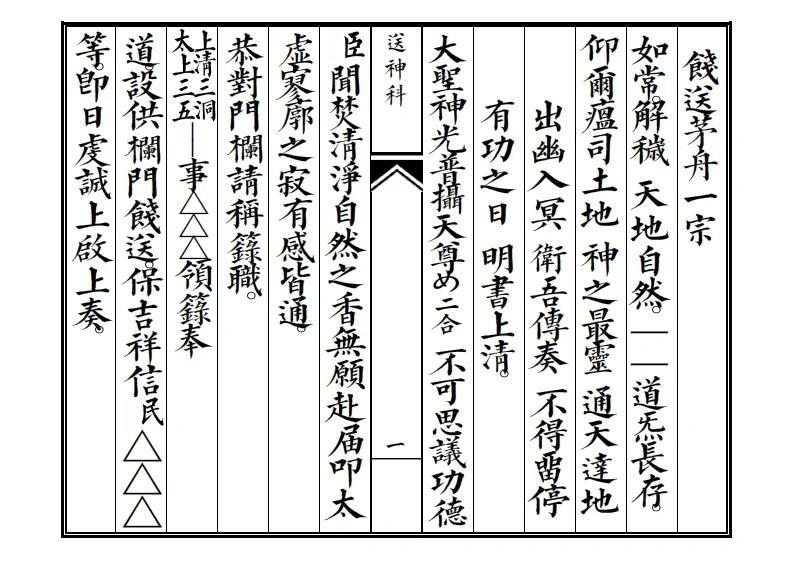 餞送茅舟一宗
如常。解穢 天地自然。｜｜道炁長存。
仰爾瘟司土地 神之最靈 通天達地
出幽入冥 衛吾傳奏 不得畱停
有功之日 明書上清。
大聖神光普攝天尊め二合 不可思議功德
送神科
一
臣聞焚清淨自然之香無願赴届叩太
虛寥廓之寂有感皆通。
恭對門欄請稱籙職。
上清三洞
太上三五｜事△△△領籙奉
道。設供欄門餞送。保吉祥信民△△△
等。卽日虔誠上啟上奏。